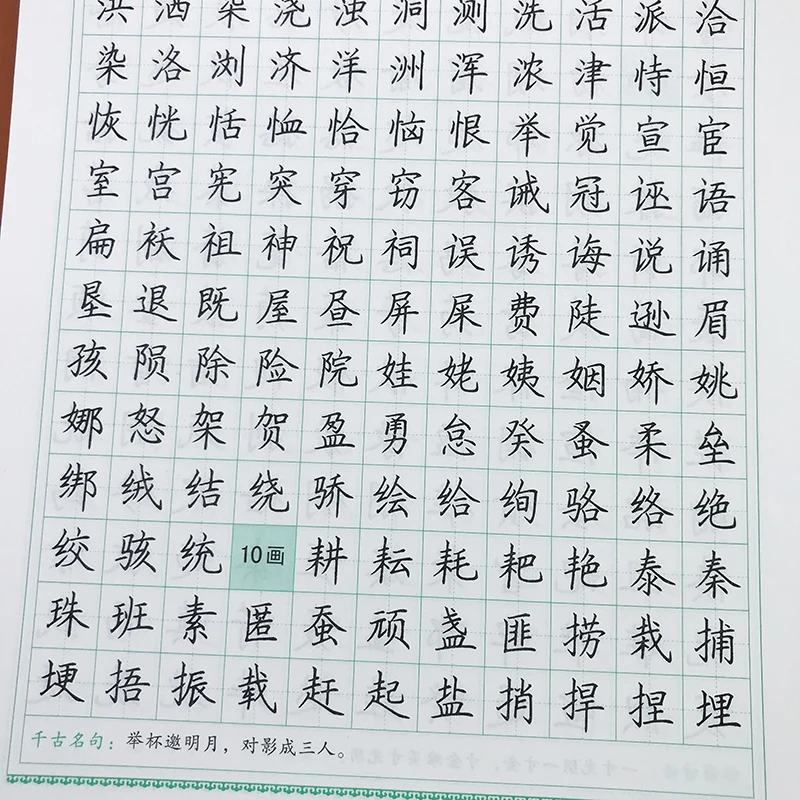 洪 洒 柒 浇 浊 洞 测 洗 活 派 洽
染 洛 浏 济 洋 洲 浑 浓 津 恃 恒
恢 恍 恬 恤 恰 恼 恨 举 觉 宣 宦
室 宫 宪 突 穿 窃 客 诫 冠 诬 语
扁 袄 祖 神 祝 祠 误 诱 诲 说 诵
垦 退 既 屋 昼 屏 屎 费 陡 逊 眉
孩 陨 除 险 院 娃 姥 姨 姻 娇 姚
娜 怒 架 贺 盈 勇 怠 癸 蚤 柔 垒
绑 绒 结 绕 骄 绘 给 绚 骆 络 绝
绞 骇 统 10画 耕 耘 耗 耙 艳 泰 秦
珠 班 素 匿 蚕 顽 盏 匪 捞 栽 捕
埂 捂 振 载 赶 起 盐 捎 捍 捏 埋
千古名句：举杯邀明月，对影成三人。